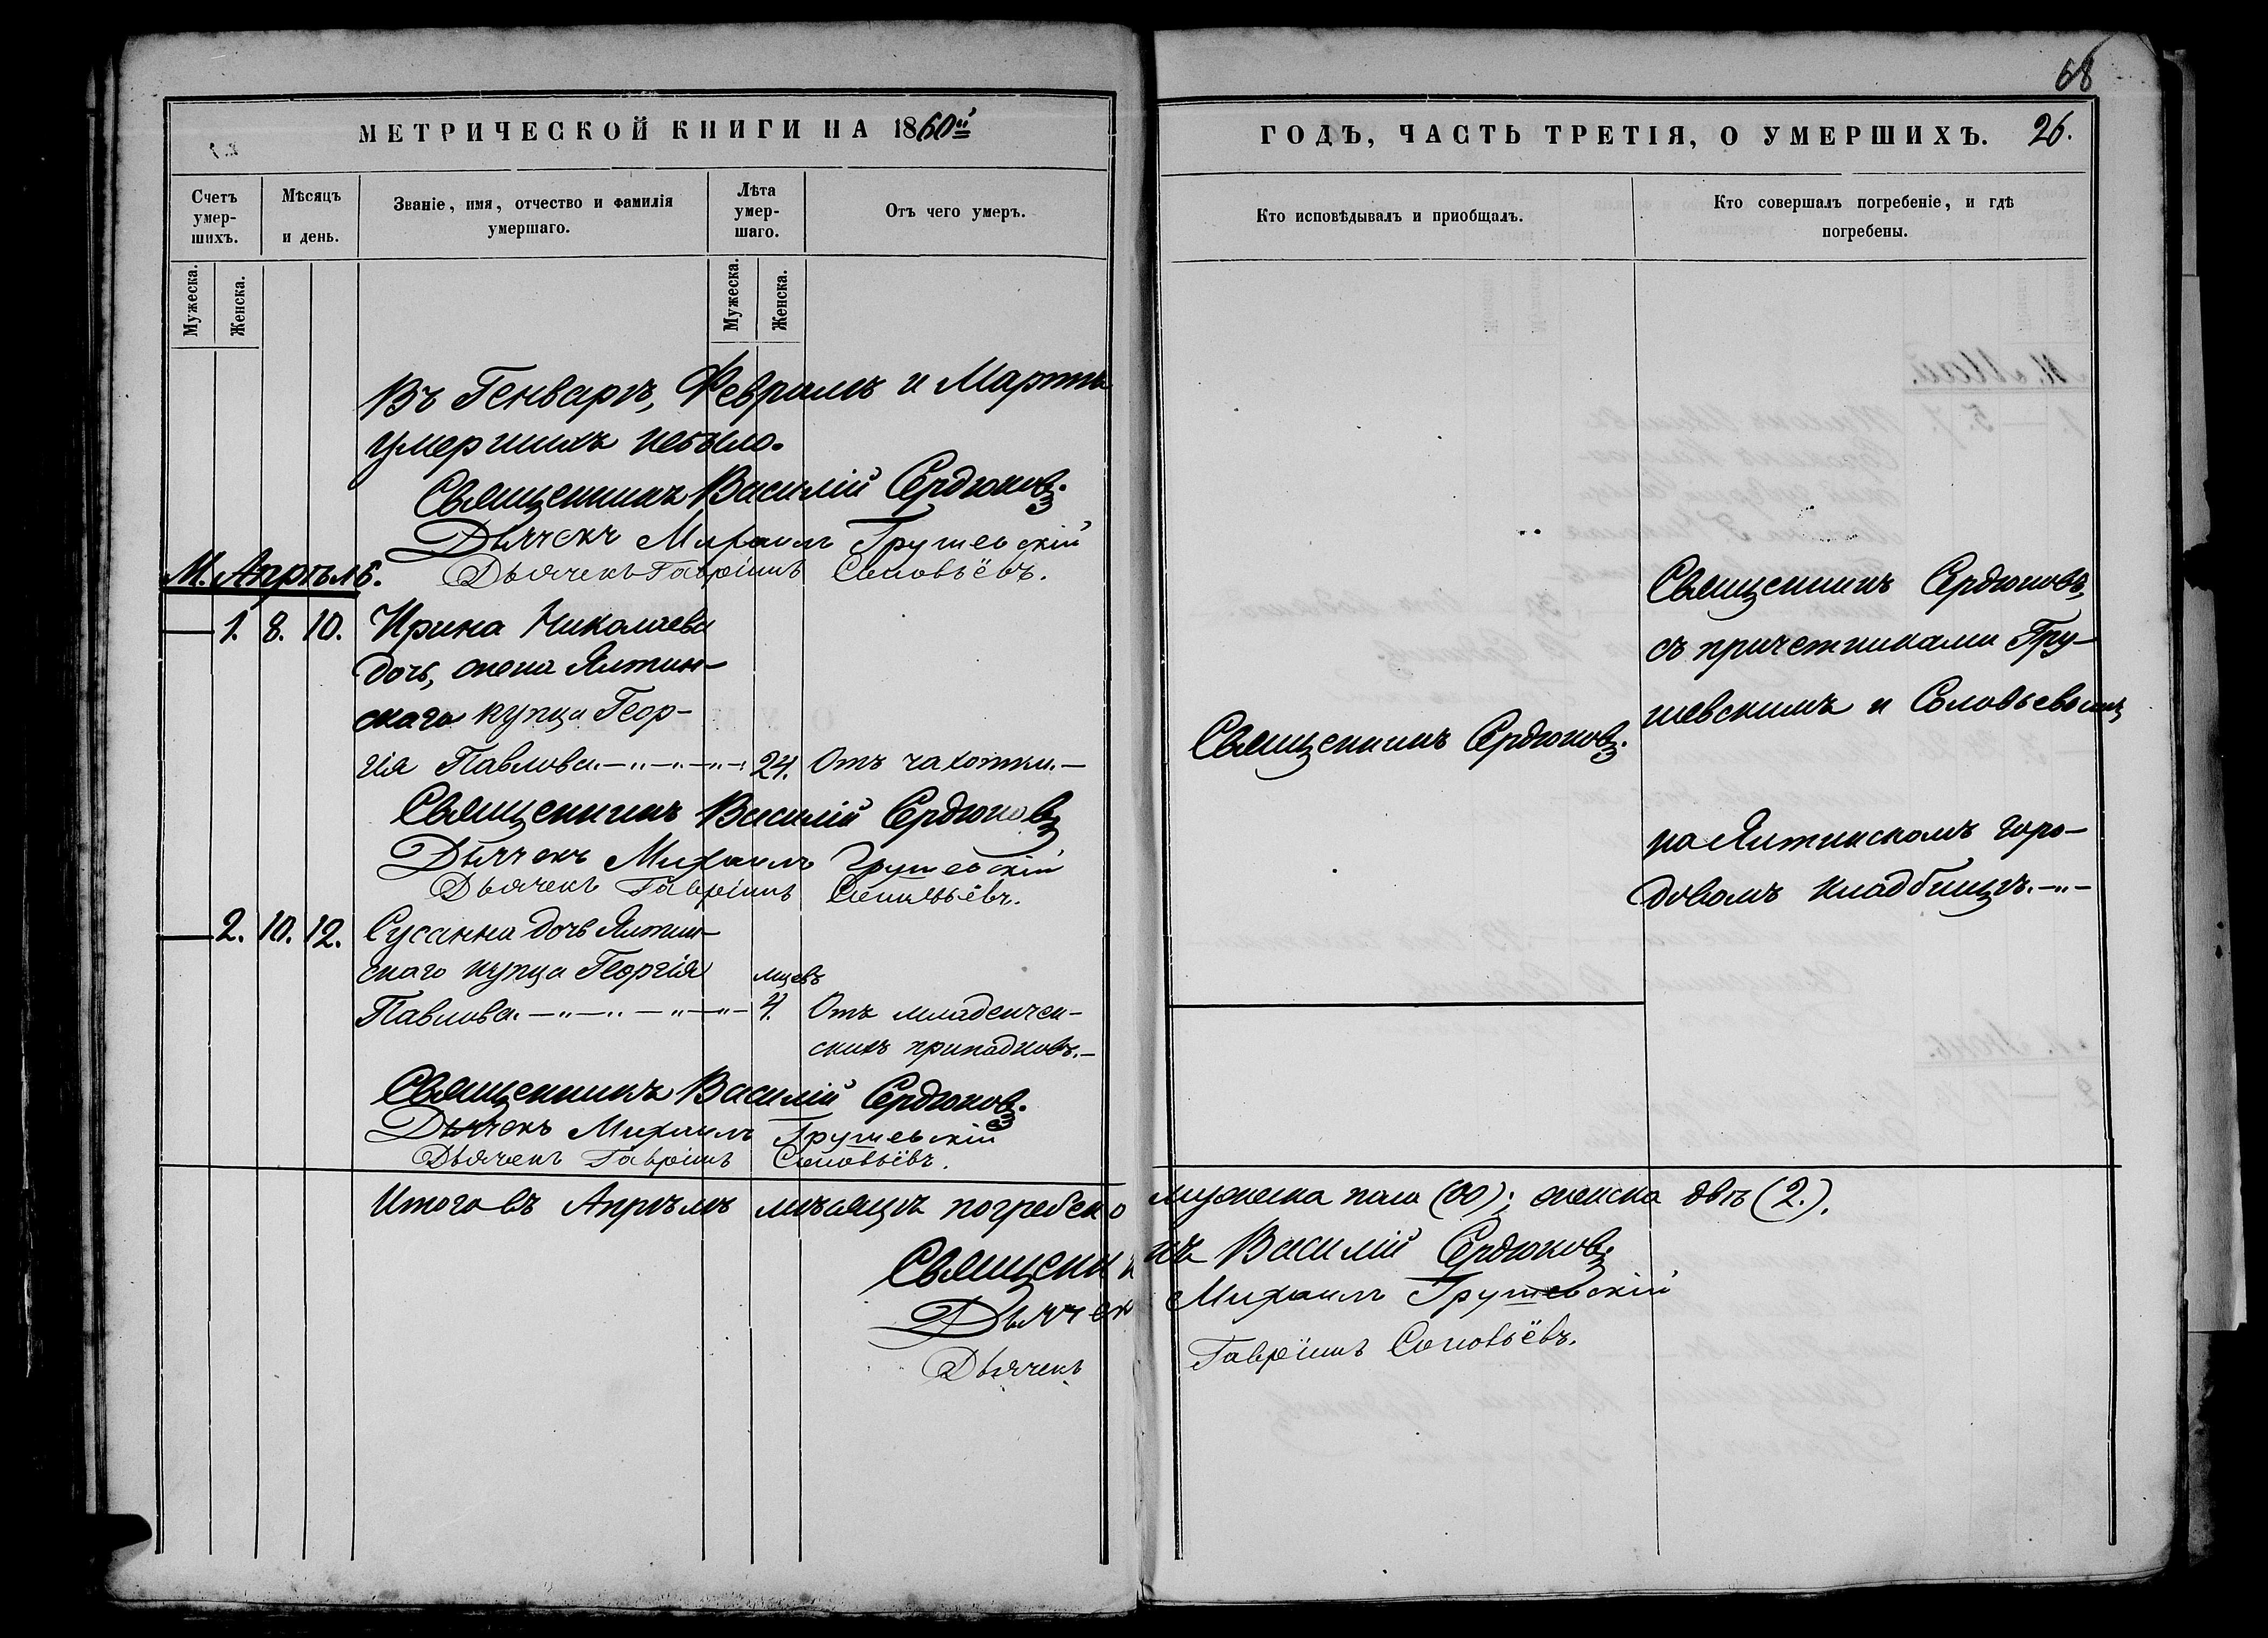 МЕТРИЧЕСКОЙ КНИГИ НА 1860й
Счетъ умер-шихъ.
Мѣсяцъ и день.
Званіе, имя, отчество и фамилія умершаго.
Лѣта умер-шаго.
Отъ чего умеръ.
Мужеска.
Женска.
Мужеска.
Женска.
Въ Генварѣ, Февралѣ и Мартѣ
умершихъ небыло.
Священникъ Василій Сердюковъ.
Дьячекъ Михаилъ Грушевскій
Дьячекъ Гавріилъ Соловьёвъ.
М. Апрѣль.
— 1. 8. 10. Ирина Николаева
дочь, жена Ялтин-
скаго купца Геор-
гія Павлова. 24. Отъ чахотки.—
Священникъ Василій Сердюковъ
Дьячекъ Михаилъ Грушевскій
Дьячекъ Гавріилъ Соловьёвъ.
— 2. 10. 12. Сусанна дочь Ялтин-
скаго купца Георгія мцевъ
Павлова. 4. Отъ младенчес-
кихъ припадковъ.—
Священникъ Василій Сердюковъ.
Дьячекъ Михаилъ Грушевскій
Дьячекъ Гавріилъ Соловьёвъ.
Итого въ Апрѣлѣ мѣсяцѣ погребено
Священни
Дьячек
Дьячекъ
68
ГОДЪ, ЧАСТЬ ТРЕТІЯ, О УМЕРШИХЪ. 26.
Кто исповѣдывалъ и пріобщалъ.
Кто совершалъ погребеніе, и гдѣ погребены.
Священникъ Сердюковъ.
Священникъ Сердюковъ,
съ причетниками Гру-
шевскимъ и Соловьевымъ
на Ялтинскомъ горо-
довомъ кладбищѣ.—"—
мужеска пола (00); женска двѣ (2.).
къ Василій Сердюковъ
Михаилъ Грушевскій
Гавріилъ Соловьёвъ.